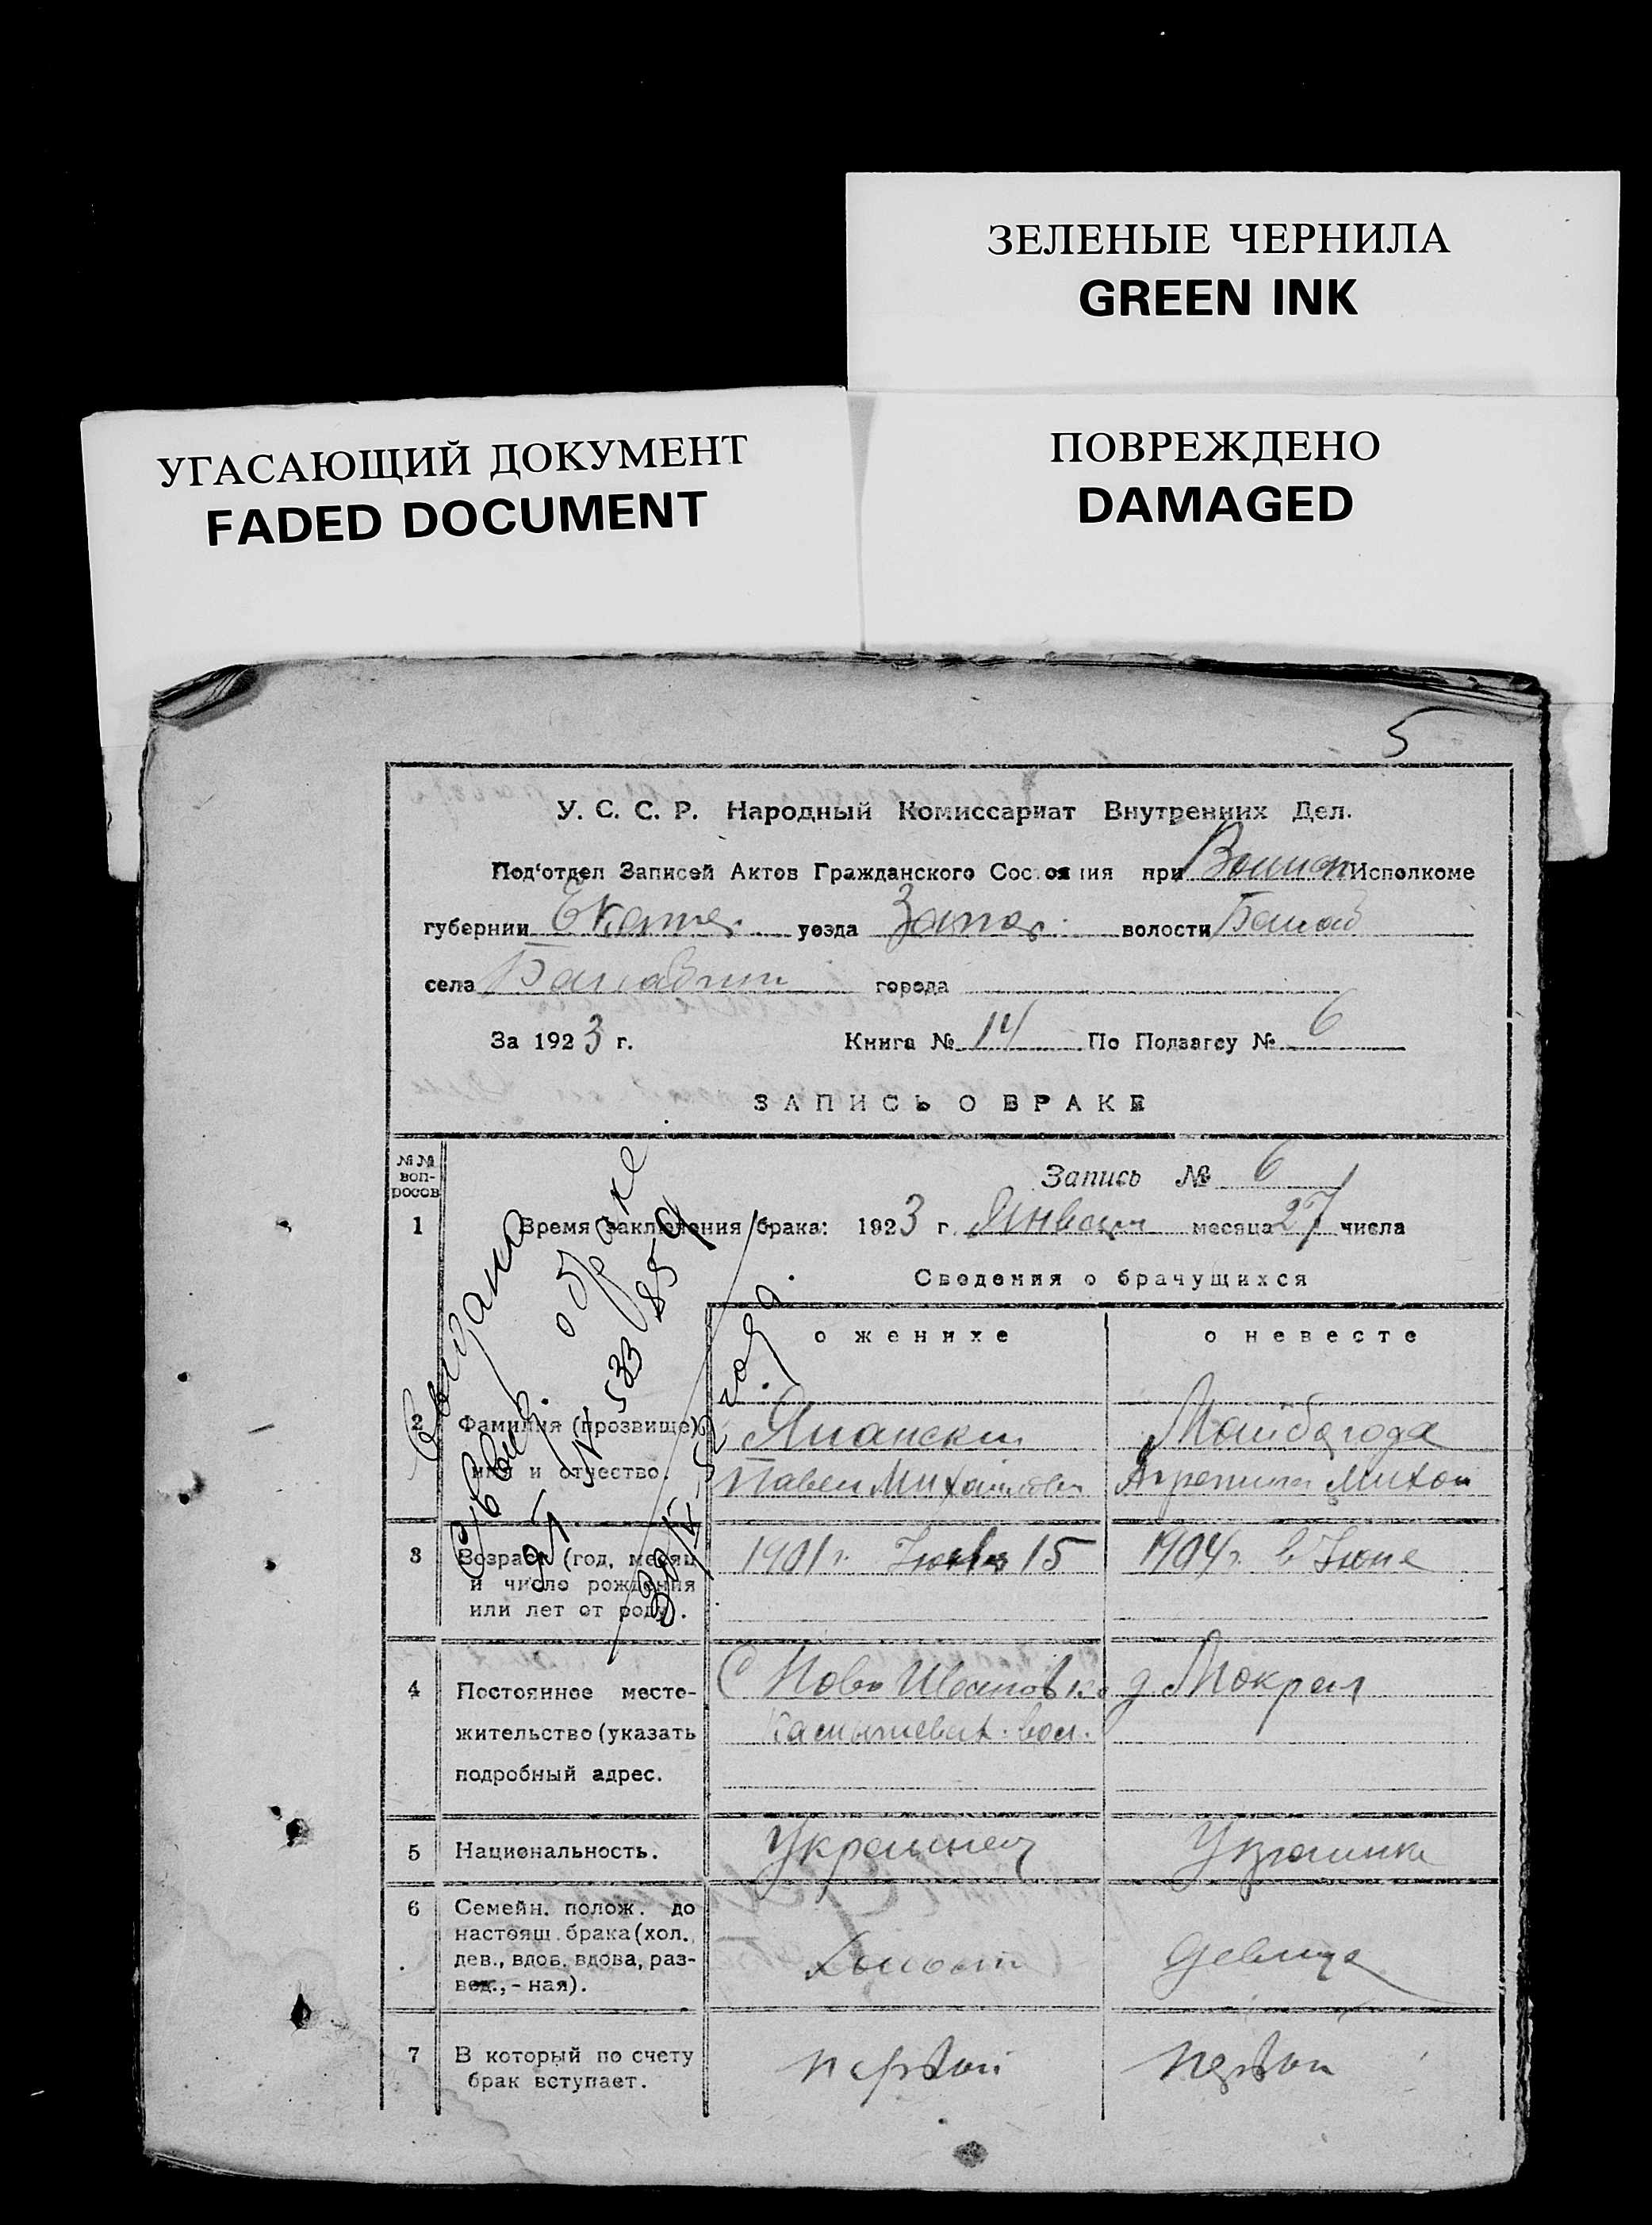 ЗЕЛЕНЫЕ ЧЕРНИЛА
GREEN INK
УГАСАЮЩИЙ ДОКУМЕНТ
FADED DOCUMENT
ПОВРЕЖДЕНО
DAMAGED
5
У. С. С. Р. Народный Комиссариат Внутренних Дел.
Под'отдел Записей Актов Гражданского Состояния при Исполкоме
губернии Екатер. уезда Запор. волости Балаб
села города
За 1923 г. Книга № 14 По Подзагсу № 6
ЗАПИСЬ О БРАКЕ
№№ вопросов
Запись № 6
1 Время заключения брака: 1923 г. Января месяца 27 числа
Сведения о брачущихся
о женихе о невесте
2 Фамилия (прозвище), Майбагода
имя и отчество. Павел Михайлович Агрепина Михай
3 Возраст (год, месяц 1901 г. 15 1904 г. в Июне
и число рождения
или лет от роду).
4 Постоянное место- С Ново Ивановка д. Мокрая
жительство (указать Камышеват. вол.
подробный адрес.
5 Национальность. Украинец Украинка
6 Семейн. полож. до
настоящ. брака (хол.,
дев., вдов. вдова, раз- Холост девица
вед., - ная).
7 В который по счету первой первой
брак вступает.
Выдано
о браке